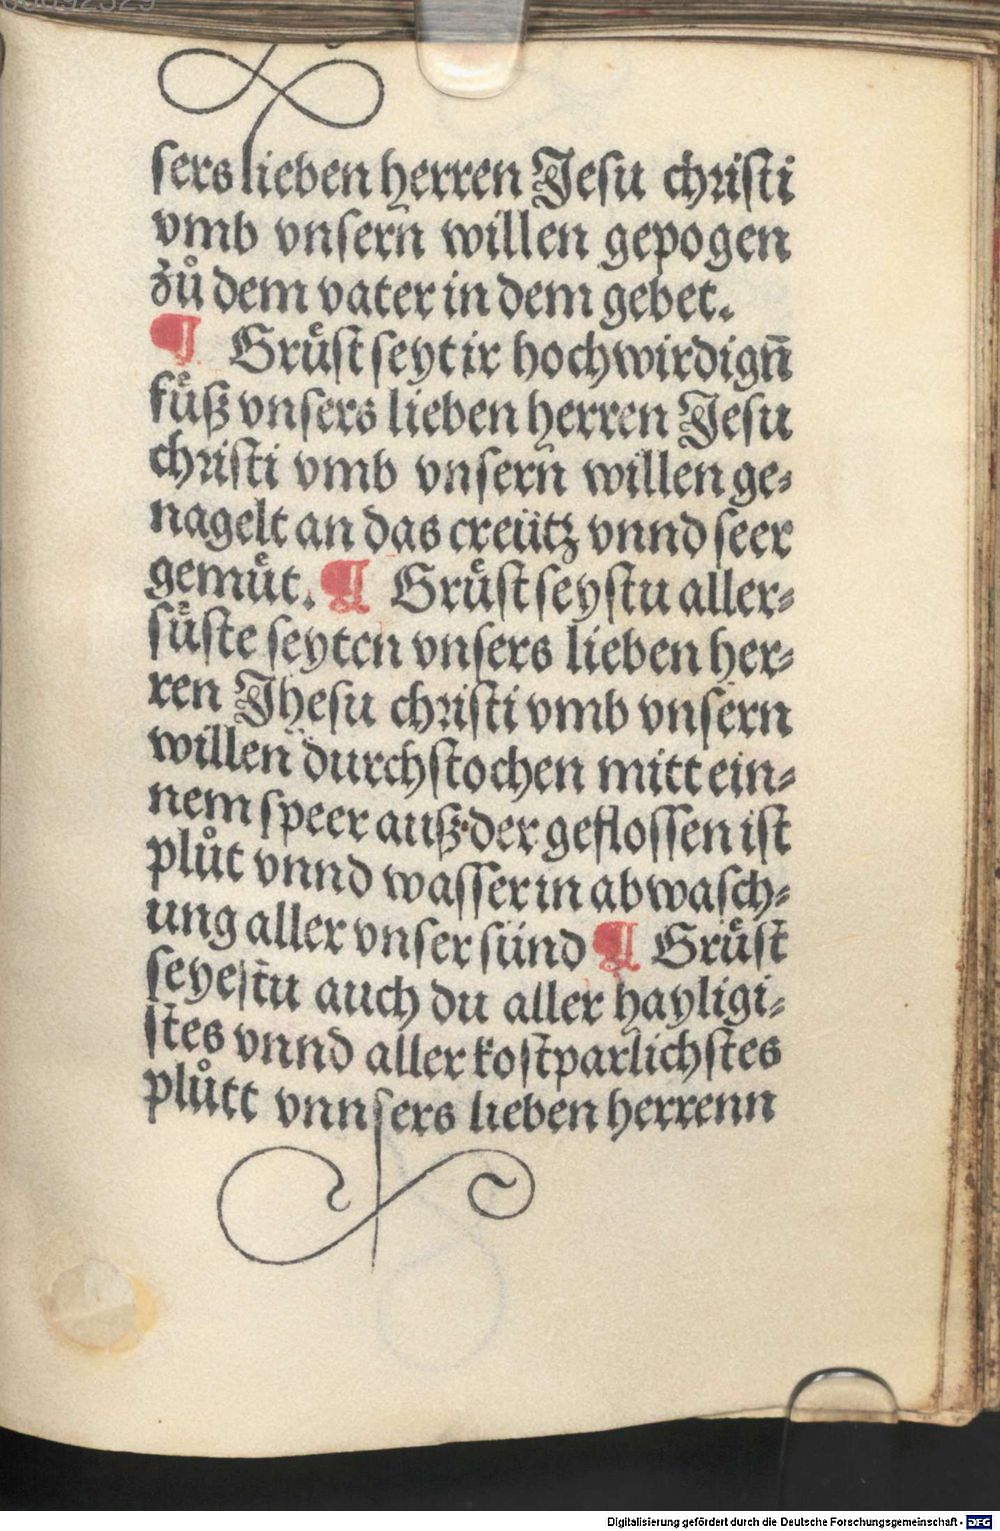 sers lieben herren Jesu christi
vmb vnsern willen gepogen
zů dem vater in dem gebet.
¶ Gruͤst seyt ir hochwirdign̄
fuͤß vnsers lieben herren Jesu
christi vmb vnsern willen ge⸗
nagelt an das creütz vnnd seer
gemuͤt. ¶ Gruͤst seystu aller⸗
suͤste seyten vnsers lieben her⸗
ren Jhesu christi vmb vnsern
willen durchstochen mitt ein⸗
nem speer auß der geflossen ist
plůt vnnd wasser in abwasch⸗
ung aller vnser sünd ¶ Gruͤst
seyestu auch du aller hayligi⸗
stes vnnd aller kostparlichstes
plůtt vnnsers lieben herrenn
Digitalisierung gefördert durch die Deutsche Forschungsgemeinschaft - DFG